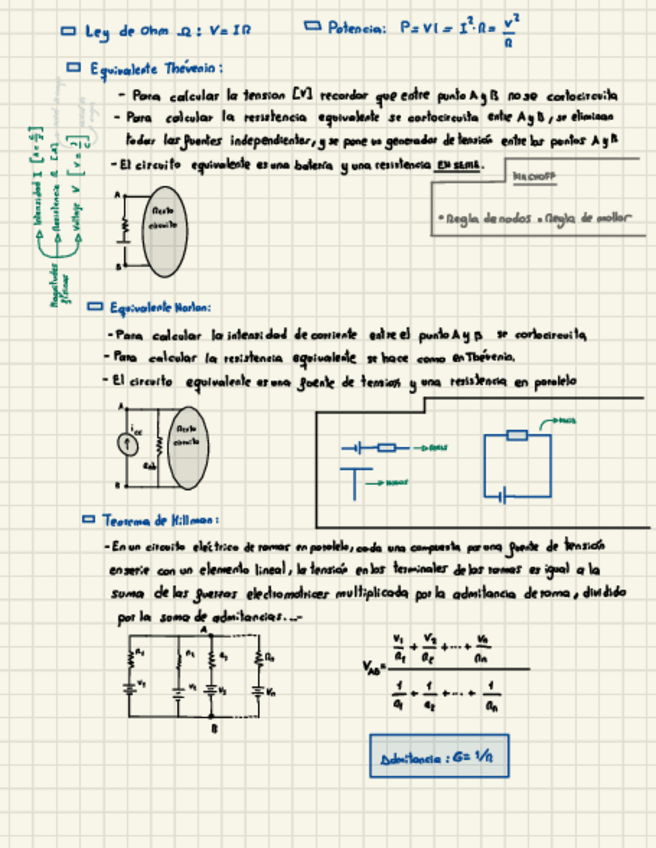 Ley de Ohm Ω: V = IR
Potencia: P = VI = I²·R = V²/R
Equivalente Thévenin:
- Para calcular la tension [V] recordar que entre punto A y B no se cortocircuita
- Para calcular la resistencia equivalente se cortocircuita entre A y B, se eliminan
todas las fuentes independientes, y se pone un generador de tensión entre los puntos A y B
- El circuito equivalente es una batería y una resistencia EN SERIE.
KIRCHOFF
• Regla de nodos • Regla de mallas
Magnitudes físicas
Intensidad I [A = C/s]
Resistencia R [Ω]
Voltaje V [V = J/C]
A
Resto
circuito
B
Equivalente Norton:
- Para calcular la intensidad de corriente entre el punto A y B se cortocircuita
- Para calcular la resistencia equivalente se hace como en Thévenin.
- El circuito equivalente es una fuente de tension y una resistencia en paralelo
A
icc
Rab
Resto
circuito
B
Teorema de Millman:
- En un circuito eléctrico de ramas en paralelo, cada una compuesta por una fuente de tensión
en serie con un elemento lineal, la tensión en los terminales de las ramas es igual a la
suma de las fuerzas electromotrices multiplicada por la admitancia de rama, dividido
por la suma de admitancias...-
A
R1 R2 R3 Rn
V1 V2 V3 Vn
B
VAB = (V1/R1 + V2/R2 + ... + Vn/Rn) / (1/R1 + 1/R2 + ... + 1/Rn)
Admitancia: G = 1/R